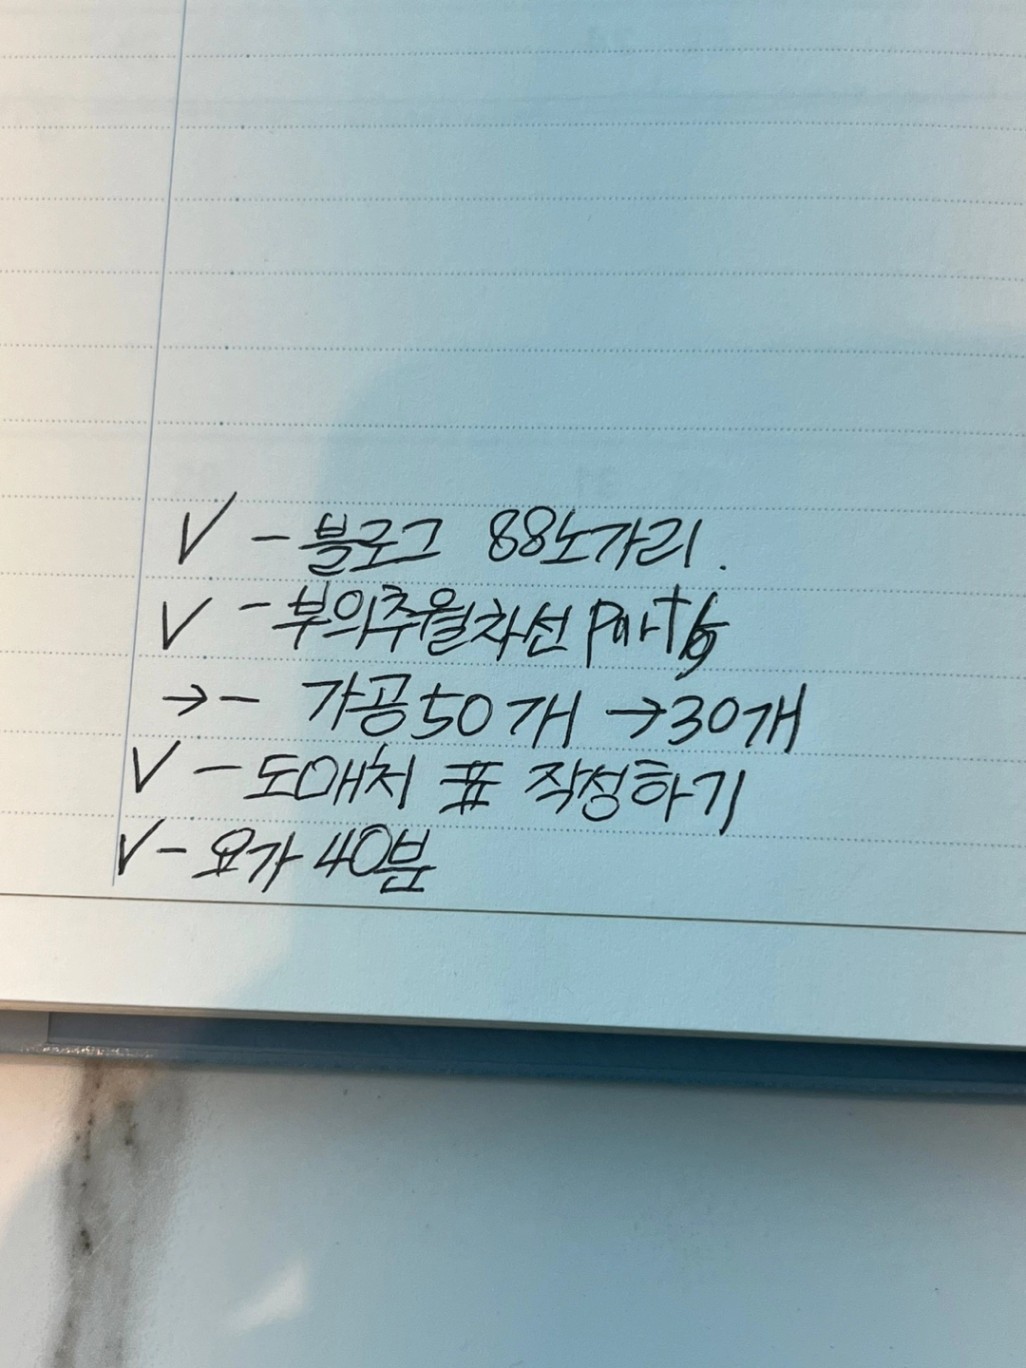 ✓ - 블로그 88노가리.
✓ - 부의추월차선 part
→ - 가공 50개 → 30개
✓ - 도매처 표 작성하기
✓ - 요가 40분